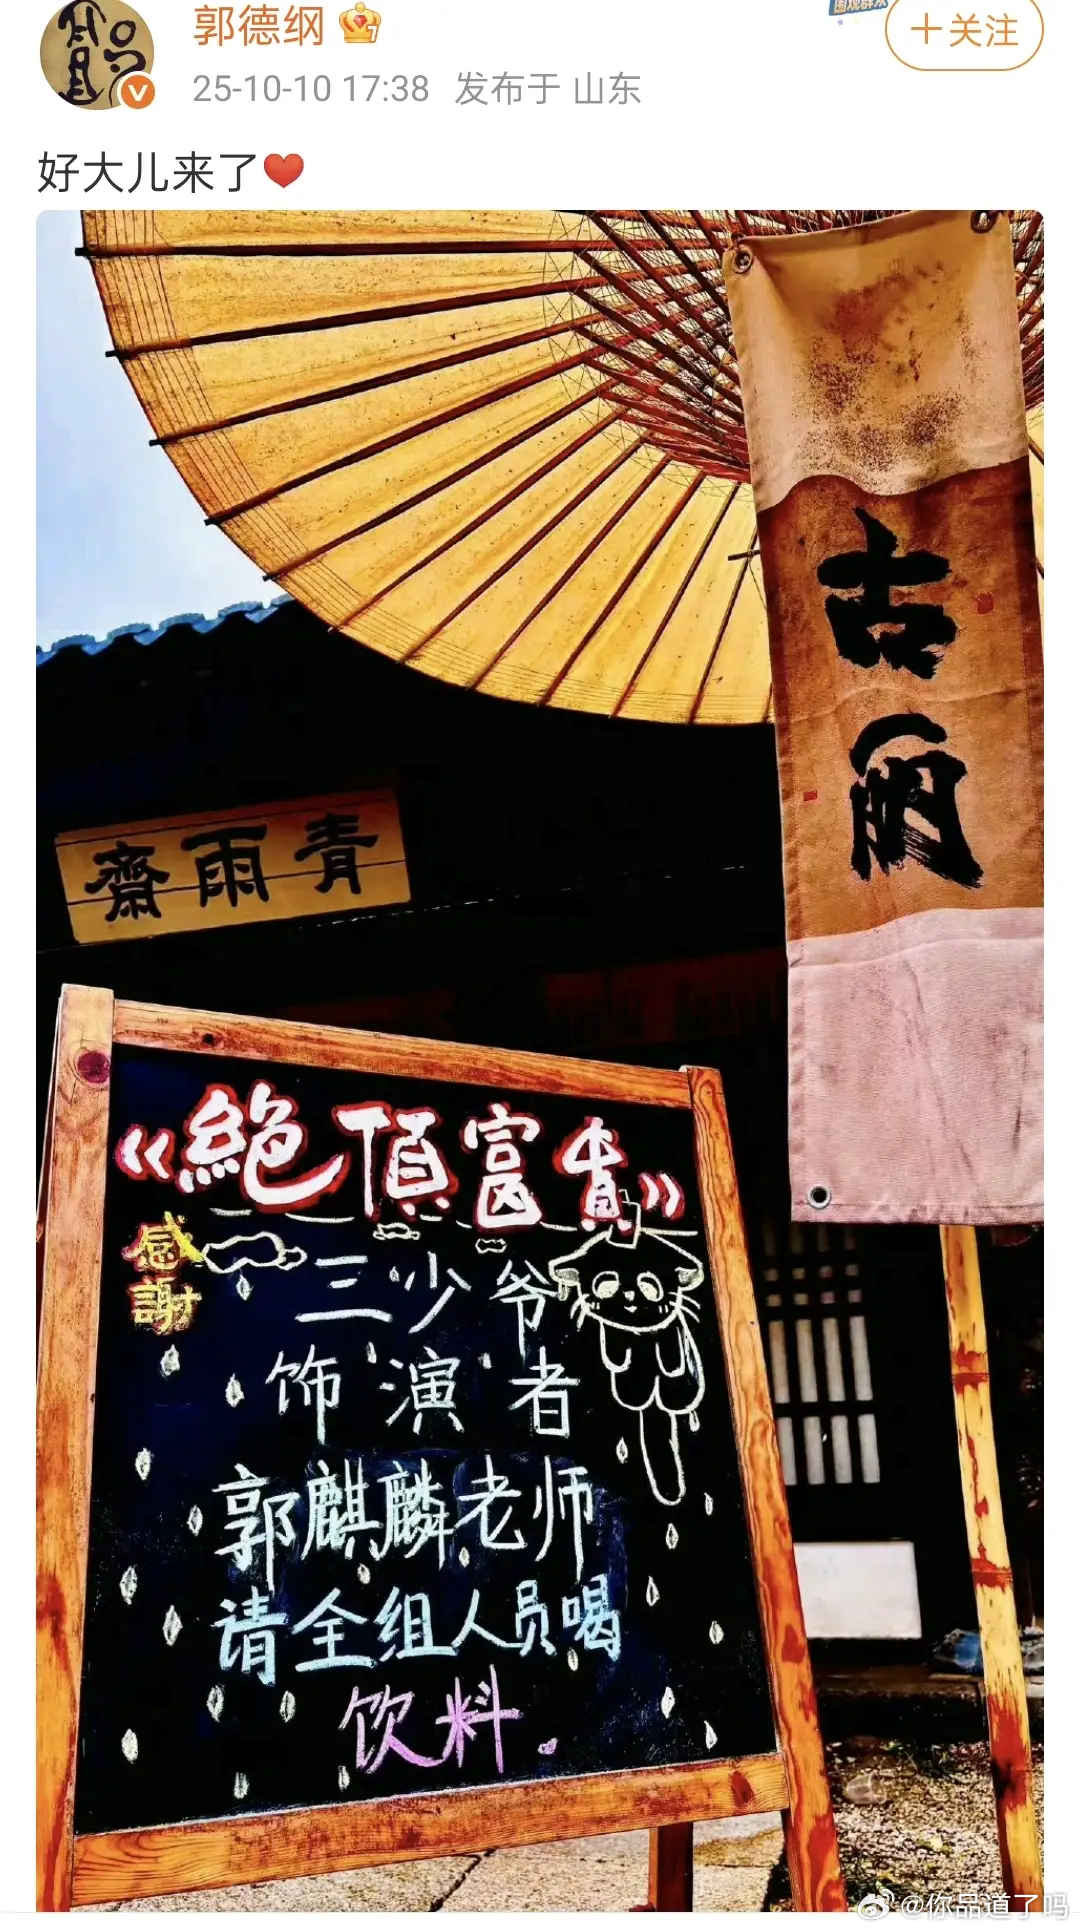 郭德纲
十关注
25-10-10 17:38 发布于 山东
好大儿来了❤️
古丽
齋雨青
《絕頂富貴》
感謝
三少爷
饰演者
郭麒麟老师
请全组人员喝
饮料
@你品道了吗